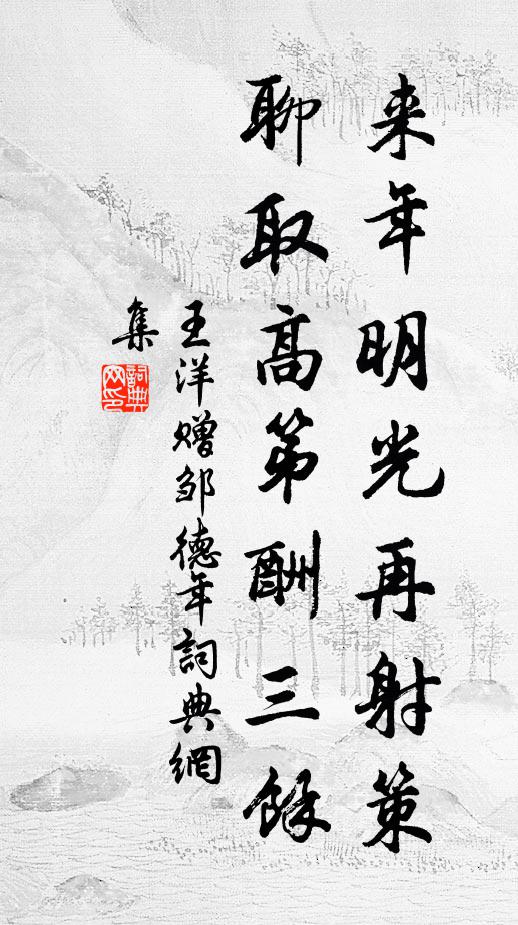 来年明光再射策
聊取高第酬三餘
王洋赠邹德年詞典網
集
詞典
网印